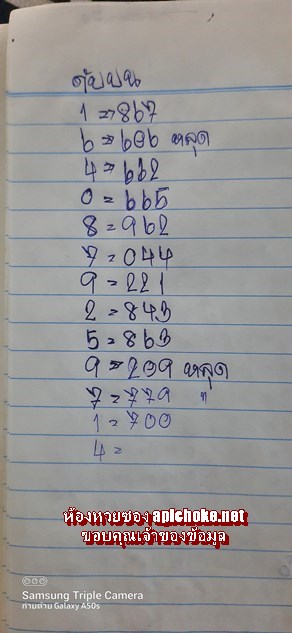 ดับบน
1 => 867
6 = 696 หลุด
4 = 662
0 = 665
8 = 962
7 = 044
9 = 221
2 = 843
5 = 863
9 = 209 หลุด
7 = 779 "
1 = 700
4 =
ห้องหวยซอง apichoke.net
ขอบคุณเจ้าของข้อมูล
Samsung Triple Camera
ถ่ายด้วย Galaxy A50s